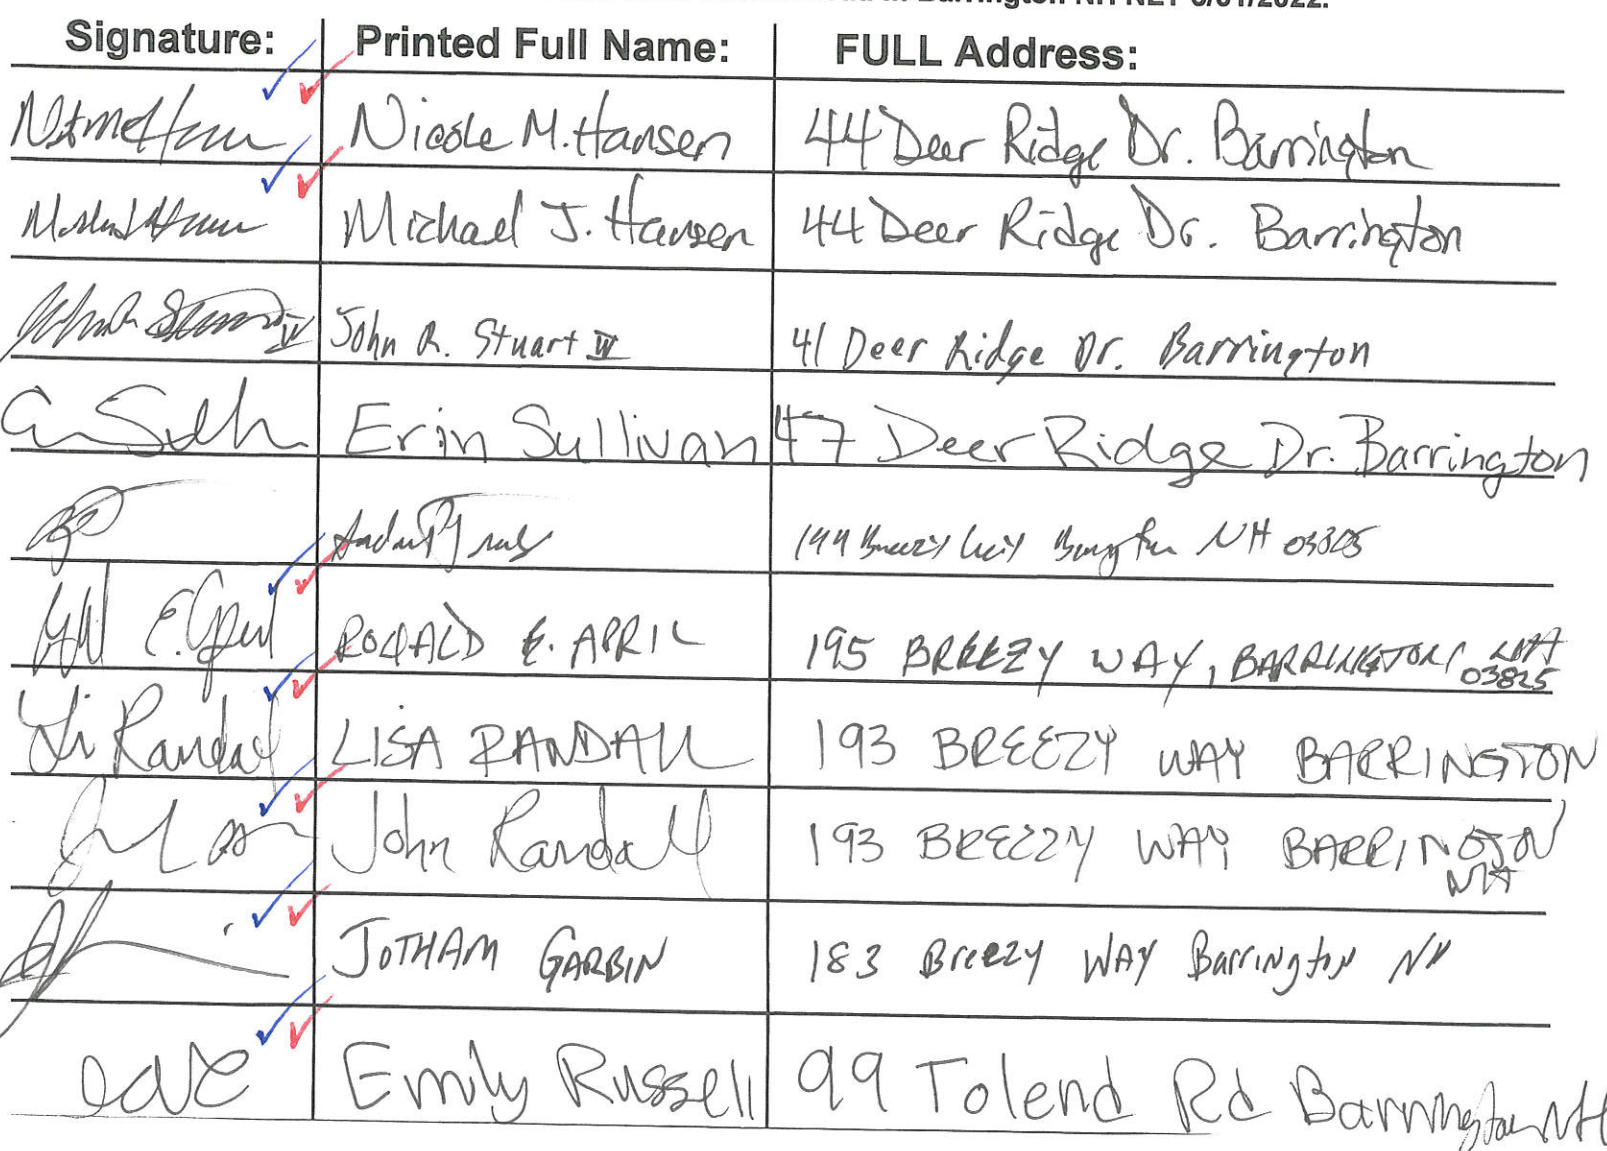 Barrington NH
Signature: Printed Full Name: FULL Address:
Nicole M. Hansen 44 Deer Ridge Dr. Barrington
Michael J. Hansen 44 Deer Ridge Dr. Barrington
John R. Stuart IV 41 Deer Ridge Dr. Barrington
Erin Sullivan 47 Deer Ridge Dr. Barrington
199 Breezy NH 03825
RONALD E. APRIL 195 BREEZY WAY, BARRINGTON, NH
03825
Li Randall LISA RANDALL 193 BREEZY WAY BARRINGTON
John Randall 193 BREEZY WAY BARRINGTON
NH
JOTHAM GARBIN 183 Breezy WAY Barrington NH
Emily Russell 99 Tolend Rd Barrington NH